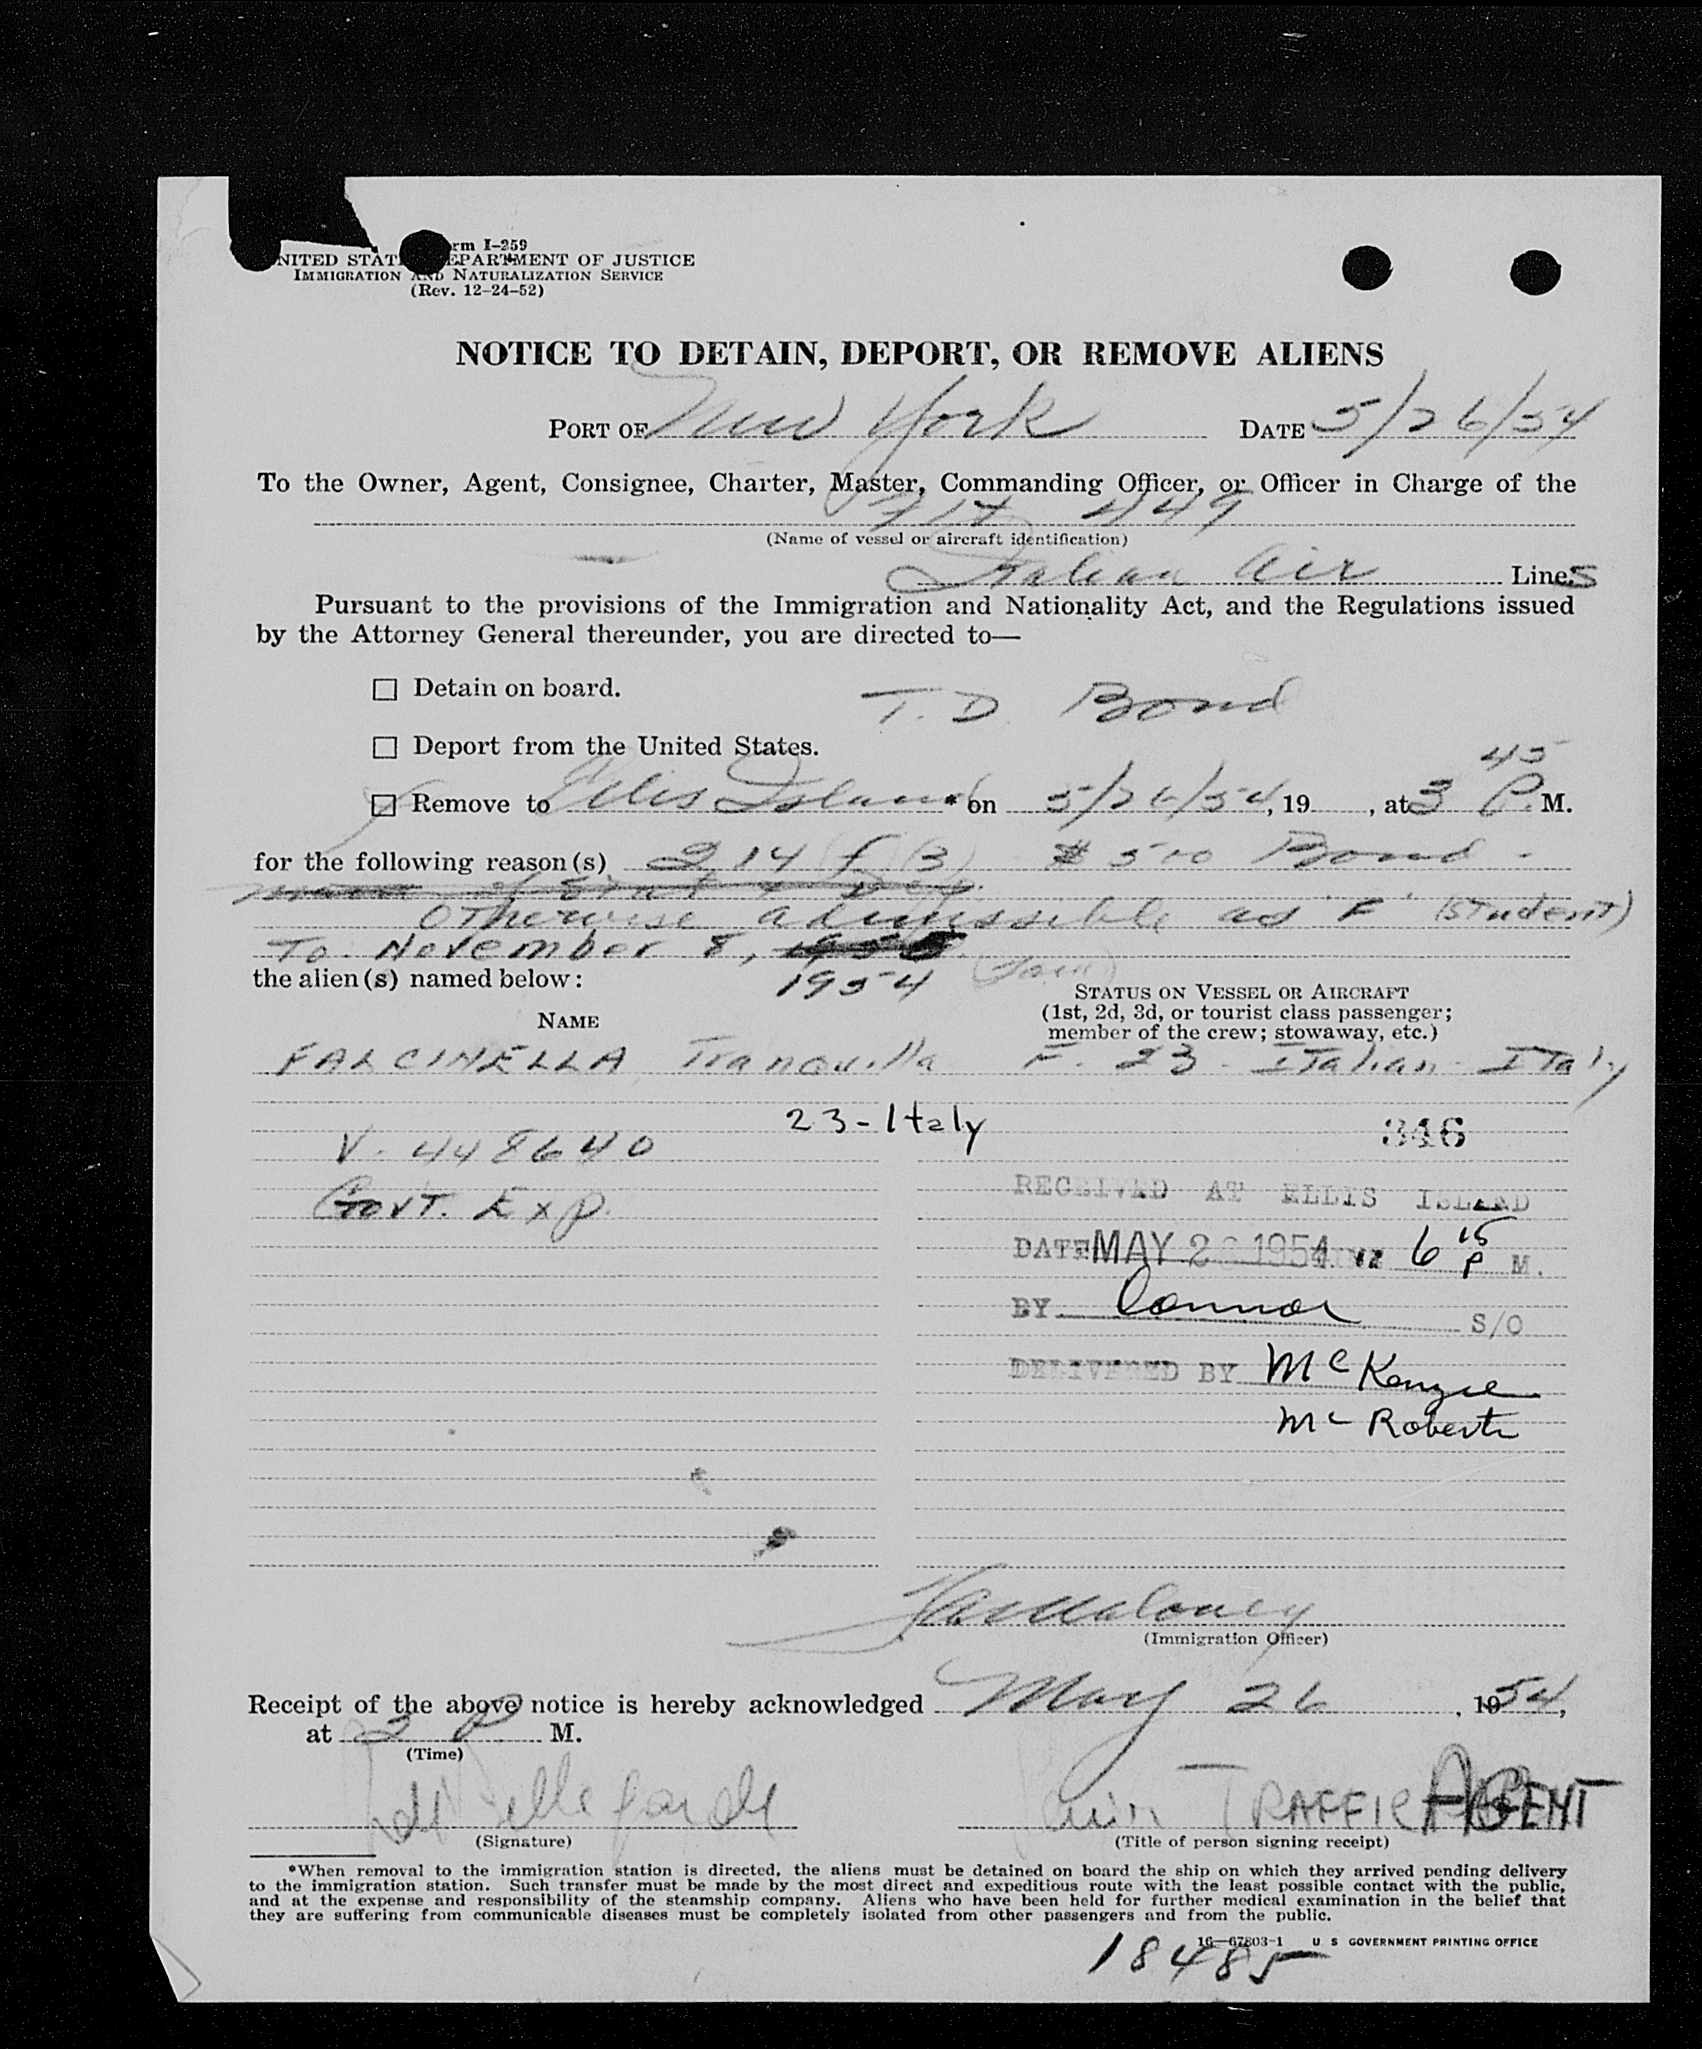 Form I-259
UNITED STATES DEPARTMENT OF JUSTICE
IMMIGRATION AND NATURALIZATION SERVICE
(Rev. 12-24-52)
NOTICE TO DETAIN, DEPORT, OR REMOVE ALIENS
PORT OF New York DATE 5/26/54
To the Owner, Agent, Consignee, Charter, Master, Commanding Officer, or Officer in Charge of the
Flt 449
(Name of vessel or aircraft identification)
Italian Air Lines
Pursuant to the provisions of the Immigration and Nationality Act, and the Regulations issued
by the Attorney General thereunder, you are directed to—
☐ Detain on board.
T. D. Bond
☐ Deport from the United States.
☐ Remove to Ellis Island * on 5/26/54, 19 , at 3 45 P. M.
for the following reason(s) 214 f (3) $500 Bond -
Otherwise admissible as "F" (student)
To November 8,
the alien(s) named below: 1954
STATUS ON VESSEL OR AIRCRAFT
(1st, 2d, 3d, or tourist class passenger;
member of the crew; stowaway, etc.)
NAME
FALCINELLA, Tranquilla F. 23 - Italian - Italy
23-Italy
346
V. 448640
Govt. Exp.
RECEIVED AT ELLIS ISLAND
DATE MAY 26 1954 6 15 P M.
BY Connor S/O
DELIVERED BY McKenzie
McRoberts
(Immigration Officer)
Receipt of the above notice is hereby acknowledged May 26, 1954,
at 3 P. M.
(Time)
TRAFFIC AGENT
(Signature) (Title of person signing receipt)
*When removal to the immigration station is directed, the aliens must be detained on board the ship on which they arrived pending delivery
to the immigration station. Such transfer must be made by the most direct and expeditious route with the least possible contact with the public,
and at the expense and responsibility of the steamship company. Aliens who have been held for further medical examination in the belief that
they are suffering from communicable diseases must be completely isolated from other passengers and from the public.
16—67803-1 U. S GOVERNMENT PRINTING OFFICE
18485